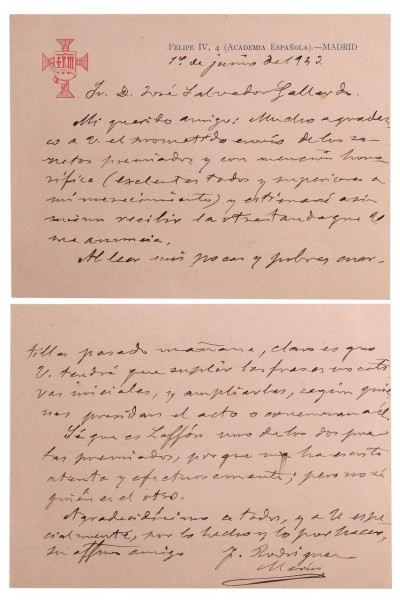 FELIPE IV, 4 (ACADEMIA ESPAÑOLA).—MADRID
1º de junio de 1943.
Sr. D. José Salvador Gallardo.
Mi querido amigo: Mucho agradez-
co a V. el prometido envío de los so-
netos premiados y con mención hono-
rífica (excelentes todos y superiores a
mi merecimiento) y estimaré asi-
mismo recibir la otra tanda que V.
me anuncia.
Al leer mis pocas y pobres cuar-
tillas pasado mañana, claro es que
V. tendrá que suplir las frases vocati-
vas iniciales, y ampliarlas, según quie-
nes presidan el acto o concurran a él.
Sé que es Laffón uno de los dos poe-
tas premiados, porque me ha escrito
atenta y efectuosamente; pero no sé
quién es el otro.
Agradecidísimo a todos, y a V. espe-
cialmente, por lo hecho y lo por hacer,
su affmo amigo F. Rodríguez
Marín